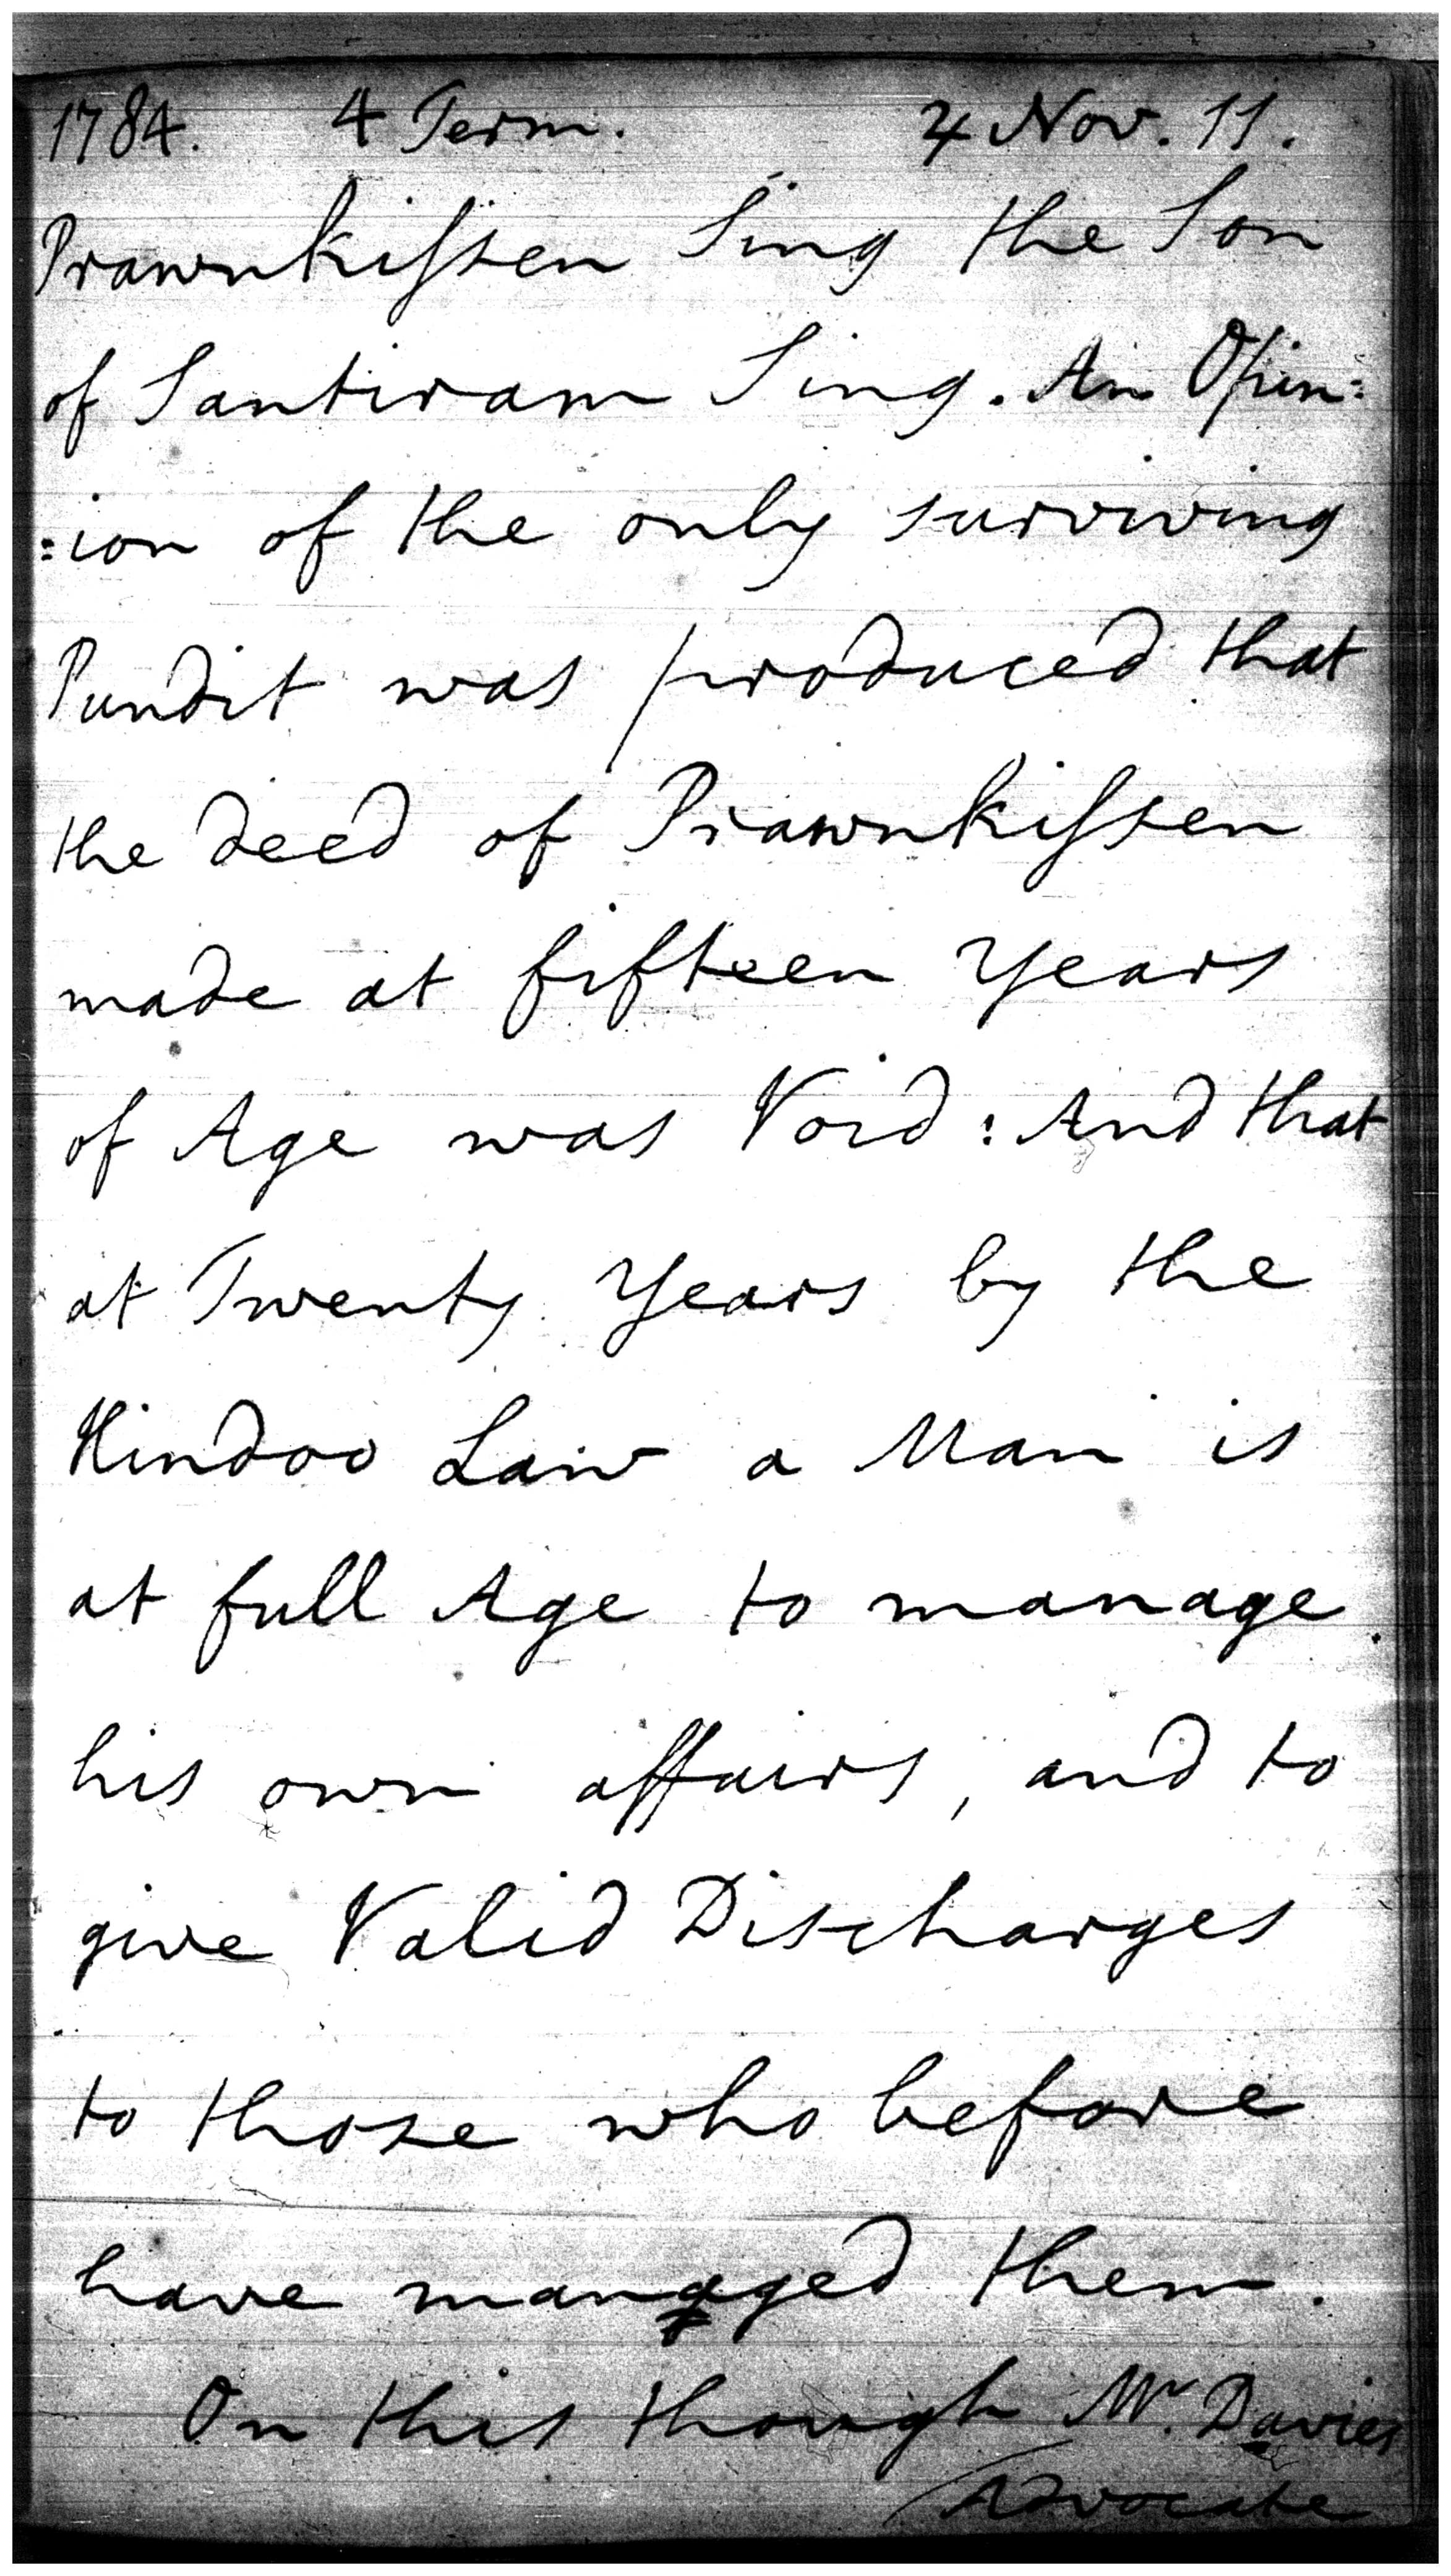 1784. 4 Term. ♃ Nov. 11.
Prawnkiſsen Sing the Son
of Santiram Sing. An Opin:
:ion of the only surviving
Pundit was produced that
the deed of Prawnkiſsen
made at fifteen Years
of Age was Void: And that
at Twenty Years by the
Hindoo Law a Man is
at full Age to manage
his own affairs, and to
give Valid Discharges
to those who before
have managed them.
On this though Mr. Davies
Advocate